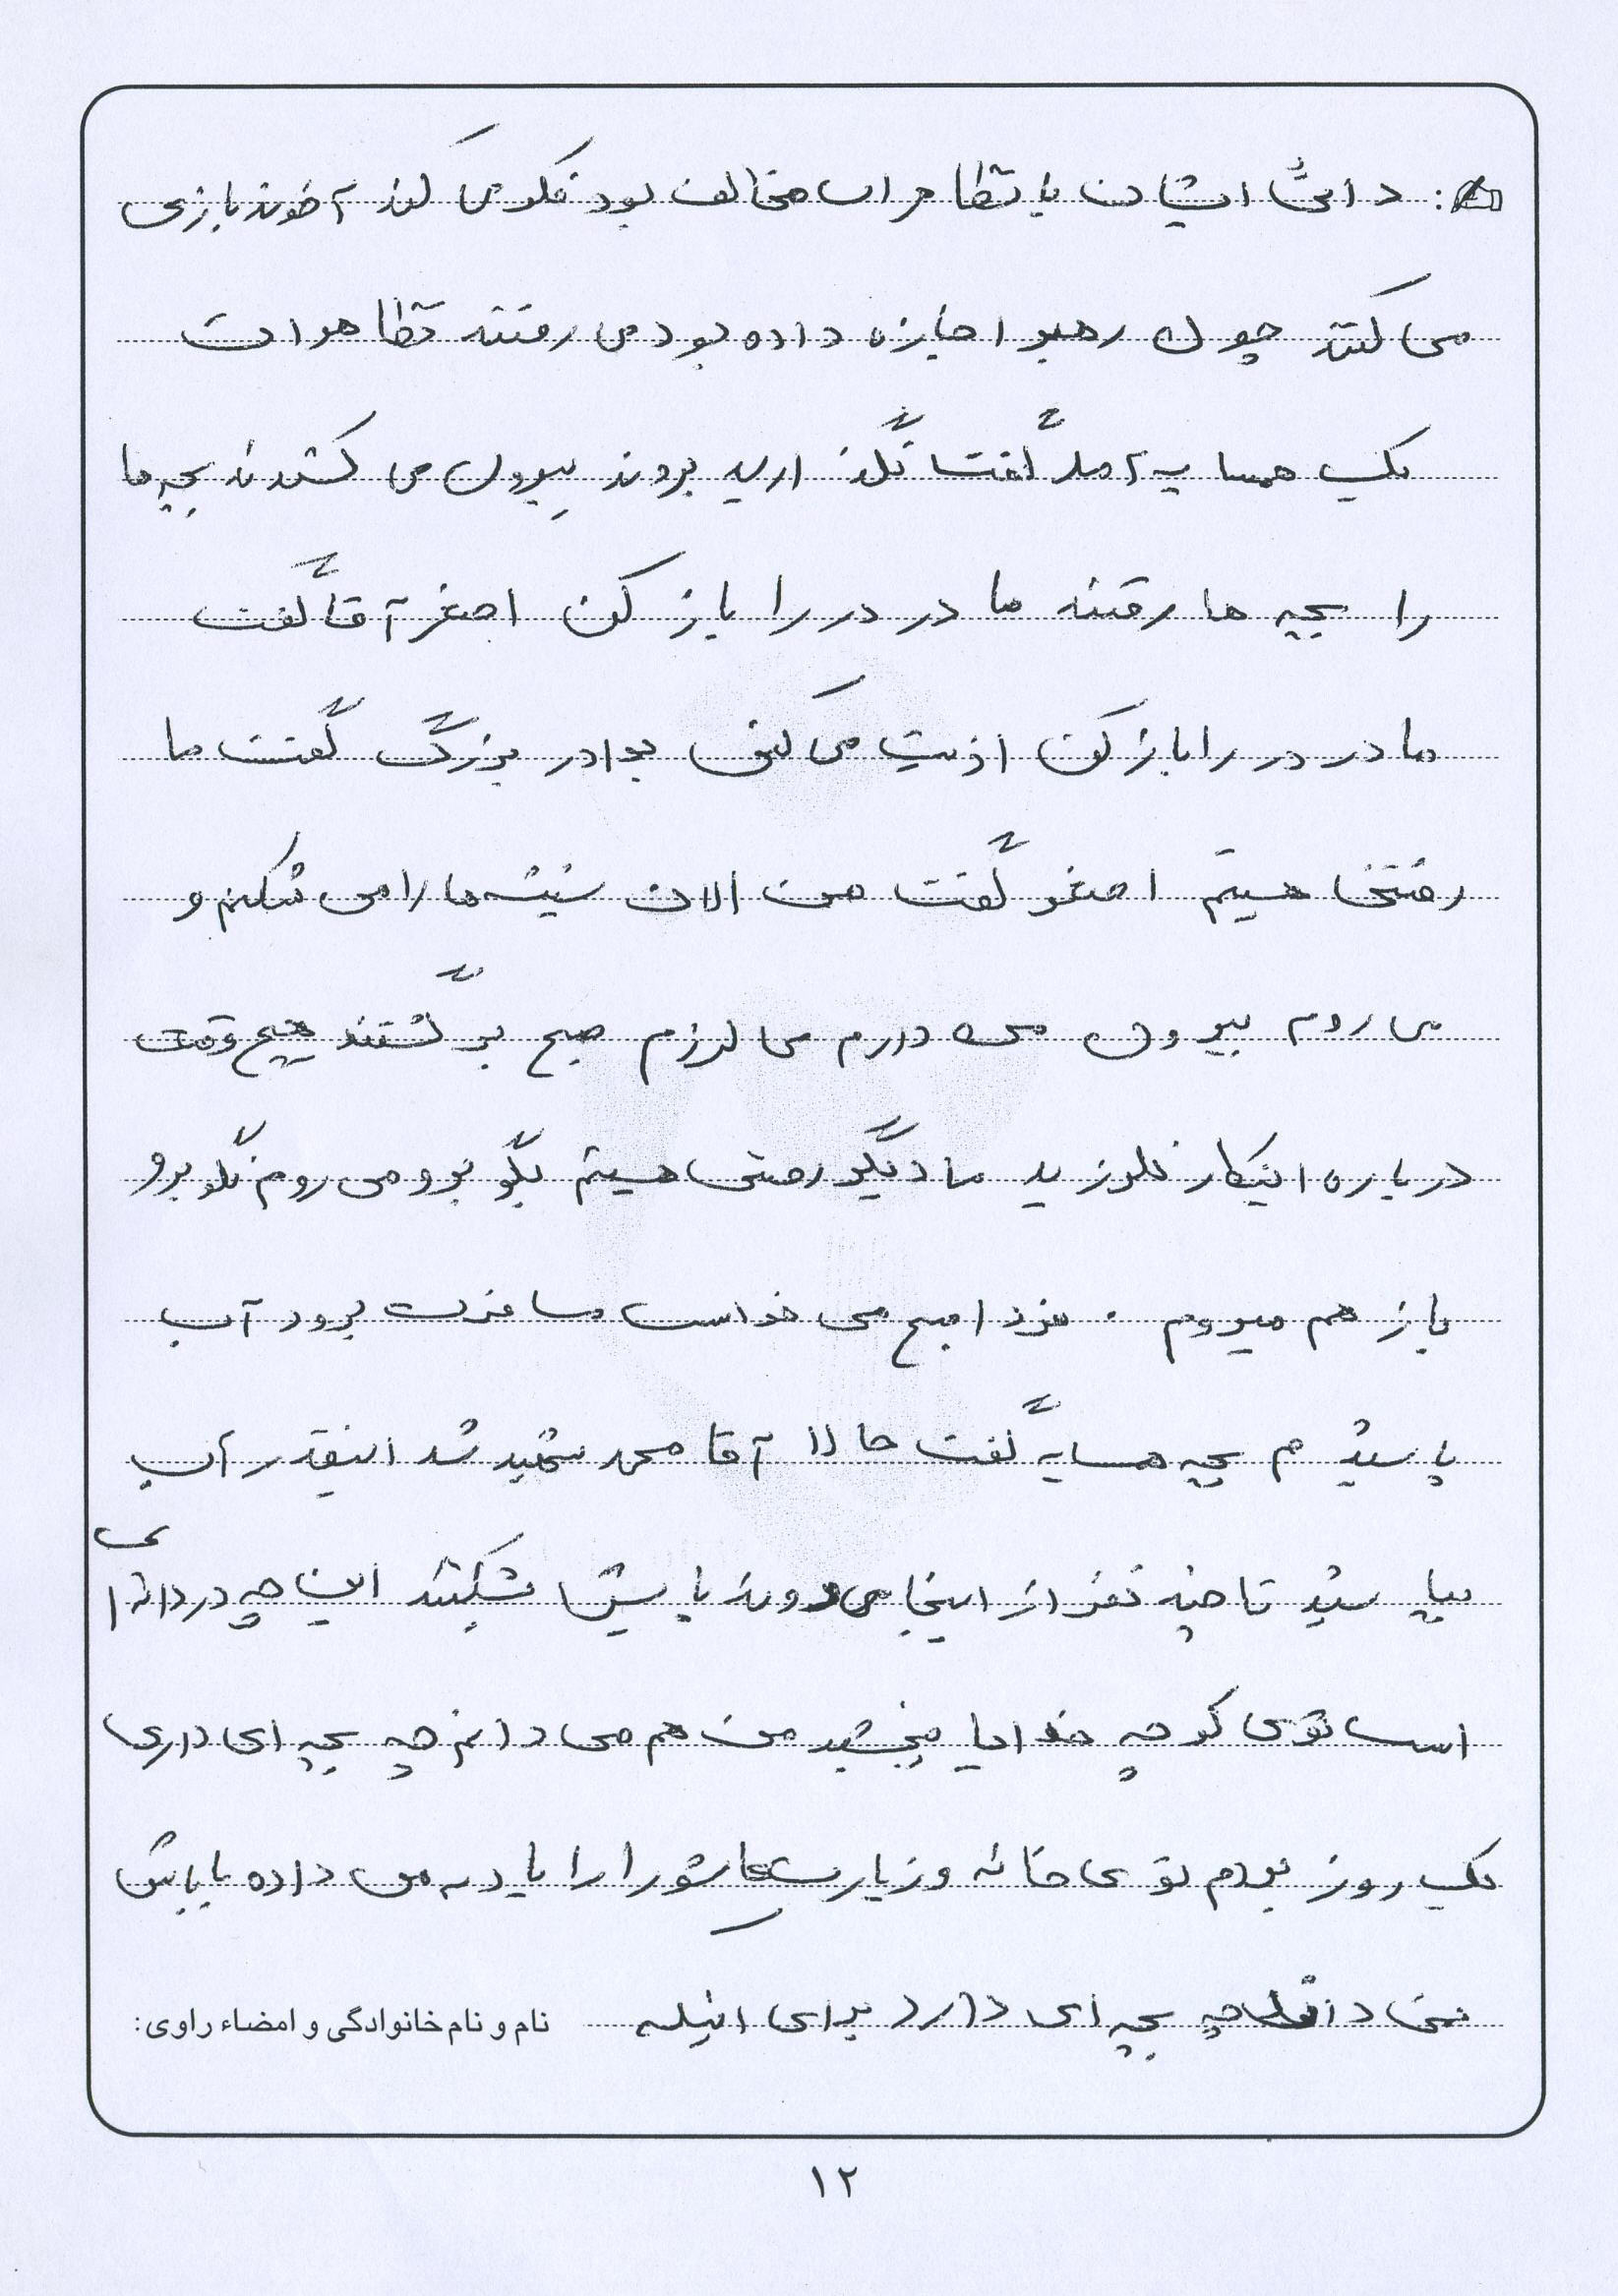 : دائی ایشان با تظاهرات مخالف بود فکر می کند آخوند بازی
می کنند چون رهبر اجازه داده بود می رفتند تظاهرات
یک همسایه آمد گفت نگذارید بروند بیرون می کشند بچه ها
را بچه ها رفتند مادر در را باز کن اصغر آقا گفت
مادر در را باز کن اذیت می کنی برادر بزرگ گفت ما
رفتنی هستیم اصغر گفت من الان شیشه ها را می شکنم و
می روم بیرون می لرزم صبح برگشتند هیچ وقت
درباره اینکار نلرزید ما دیگر رفتنی هستیم بگو برو می روم نگو برو
باز هم میروم . فردا صبح می خواست مسافرت برود آب
پاشیدم بچه همسایه گفت حالا آقا محمد شهید شد اینقدر آب
بپاشید تا چند نفر از اینجا می روند پایش بشکنند این چه دردانه ای
است توی کوچه خدایا ببخشید من هم می دانم چه بچه ای داری
یک روز بودم توی خانه و زیارت عاشورا را یاد من داده باباش
نمی داند چه بچه ای دارد برای اینکه
نام و نام خانوادگی و امضاء راوی:
۱۲